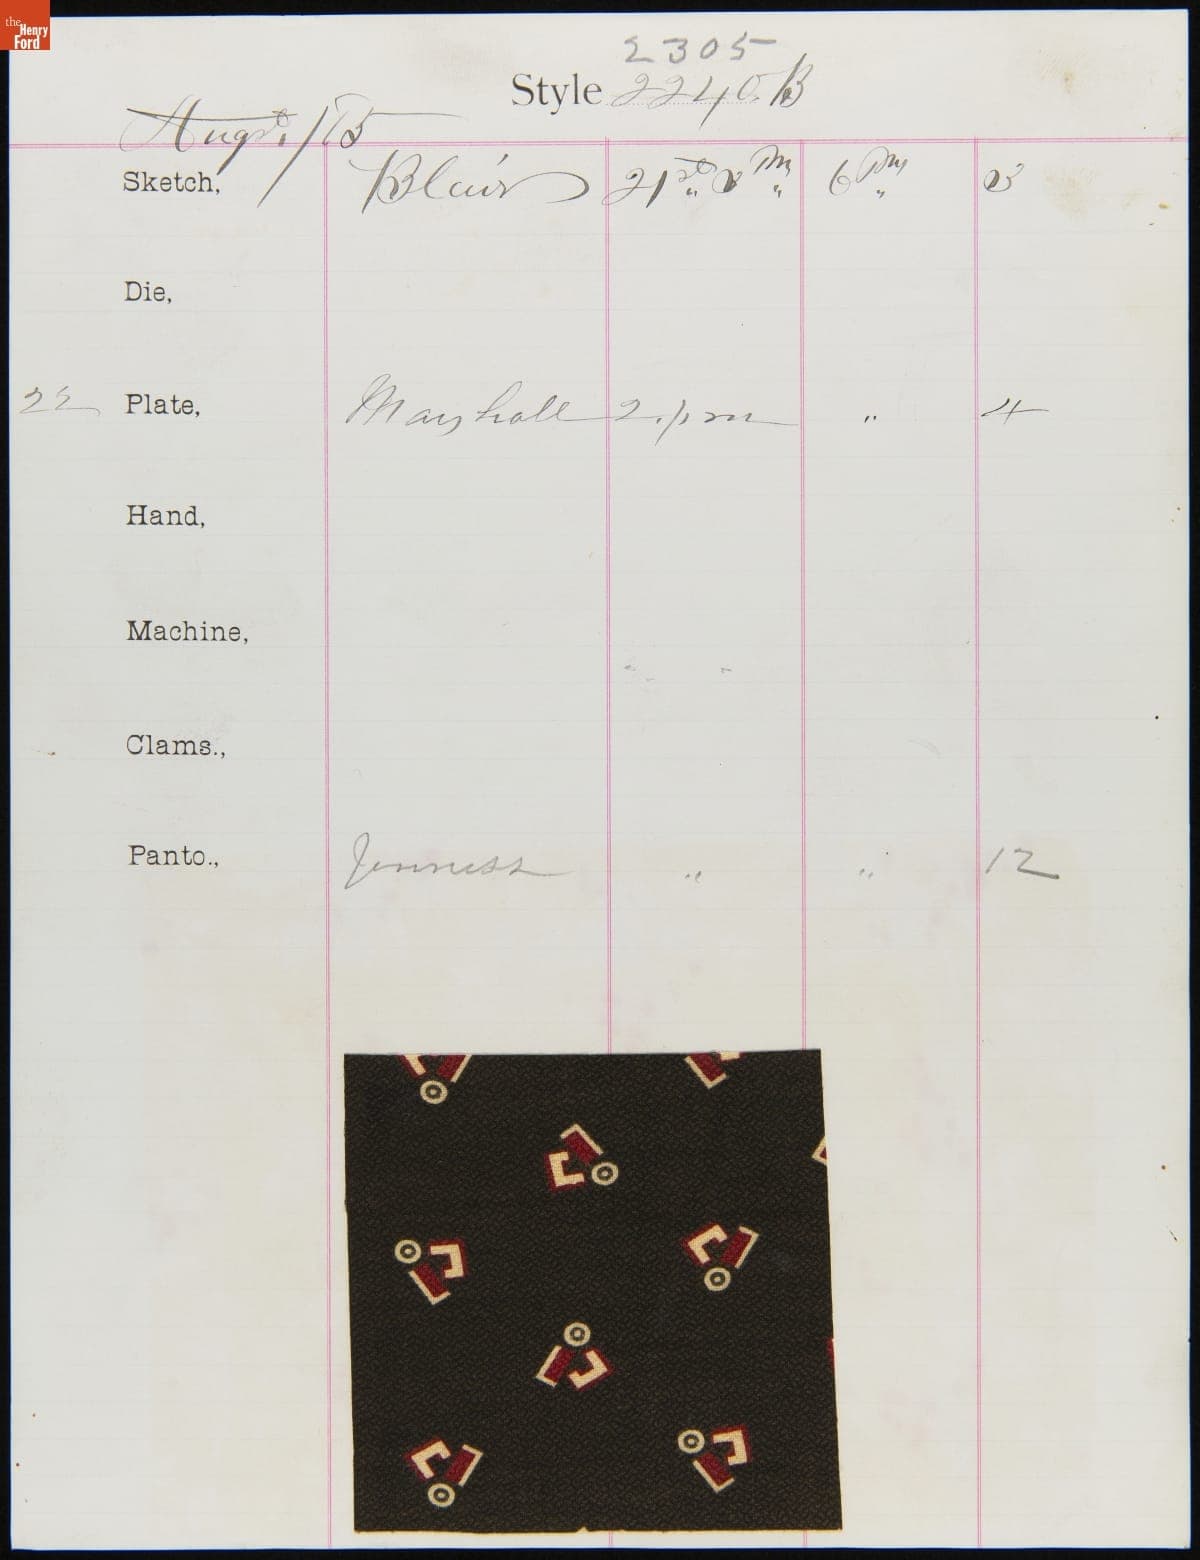 the Henry Ford
2305
Style 2240. B
Augst. / 
Sketch, Blair 21st 6 Pm
Die,
22 Plate, Marshall 2. pm " 4
Hand,
Machine,
Clams.,
Panto., Jenness " " 12